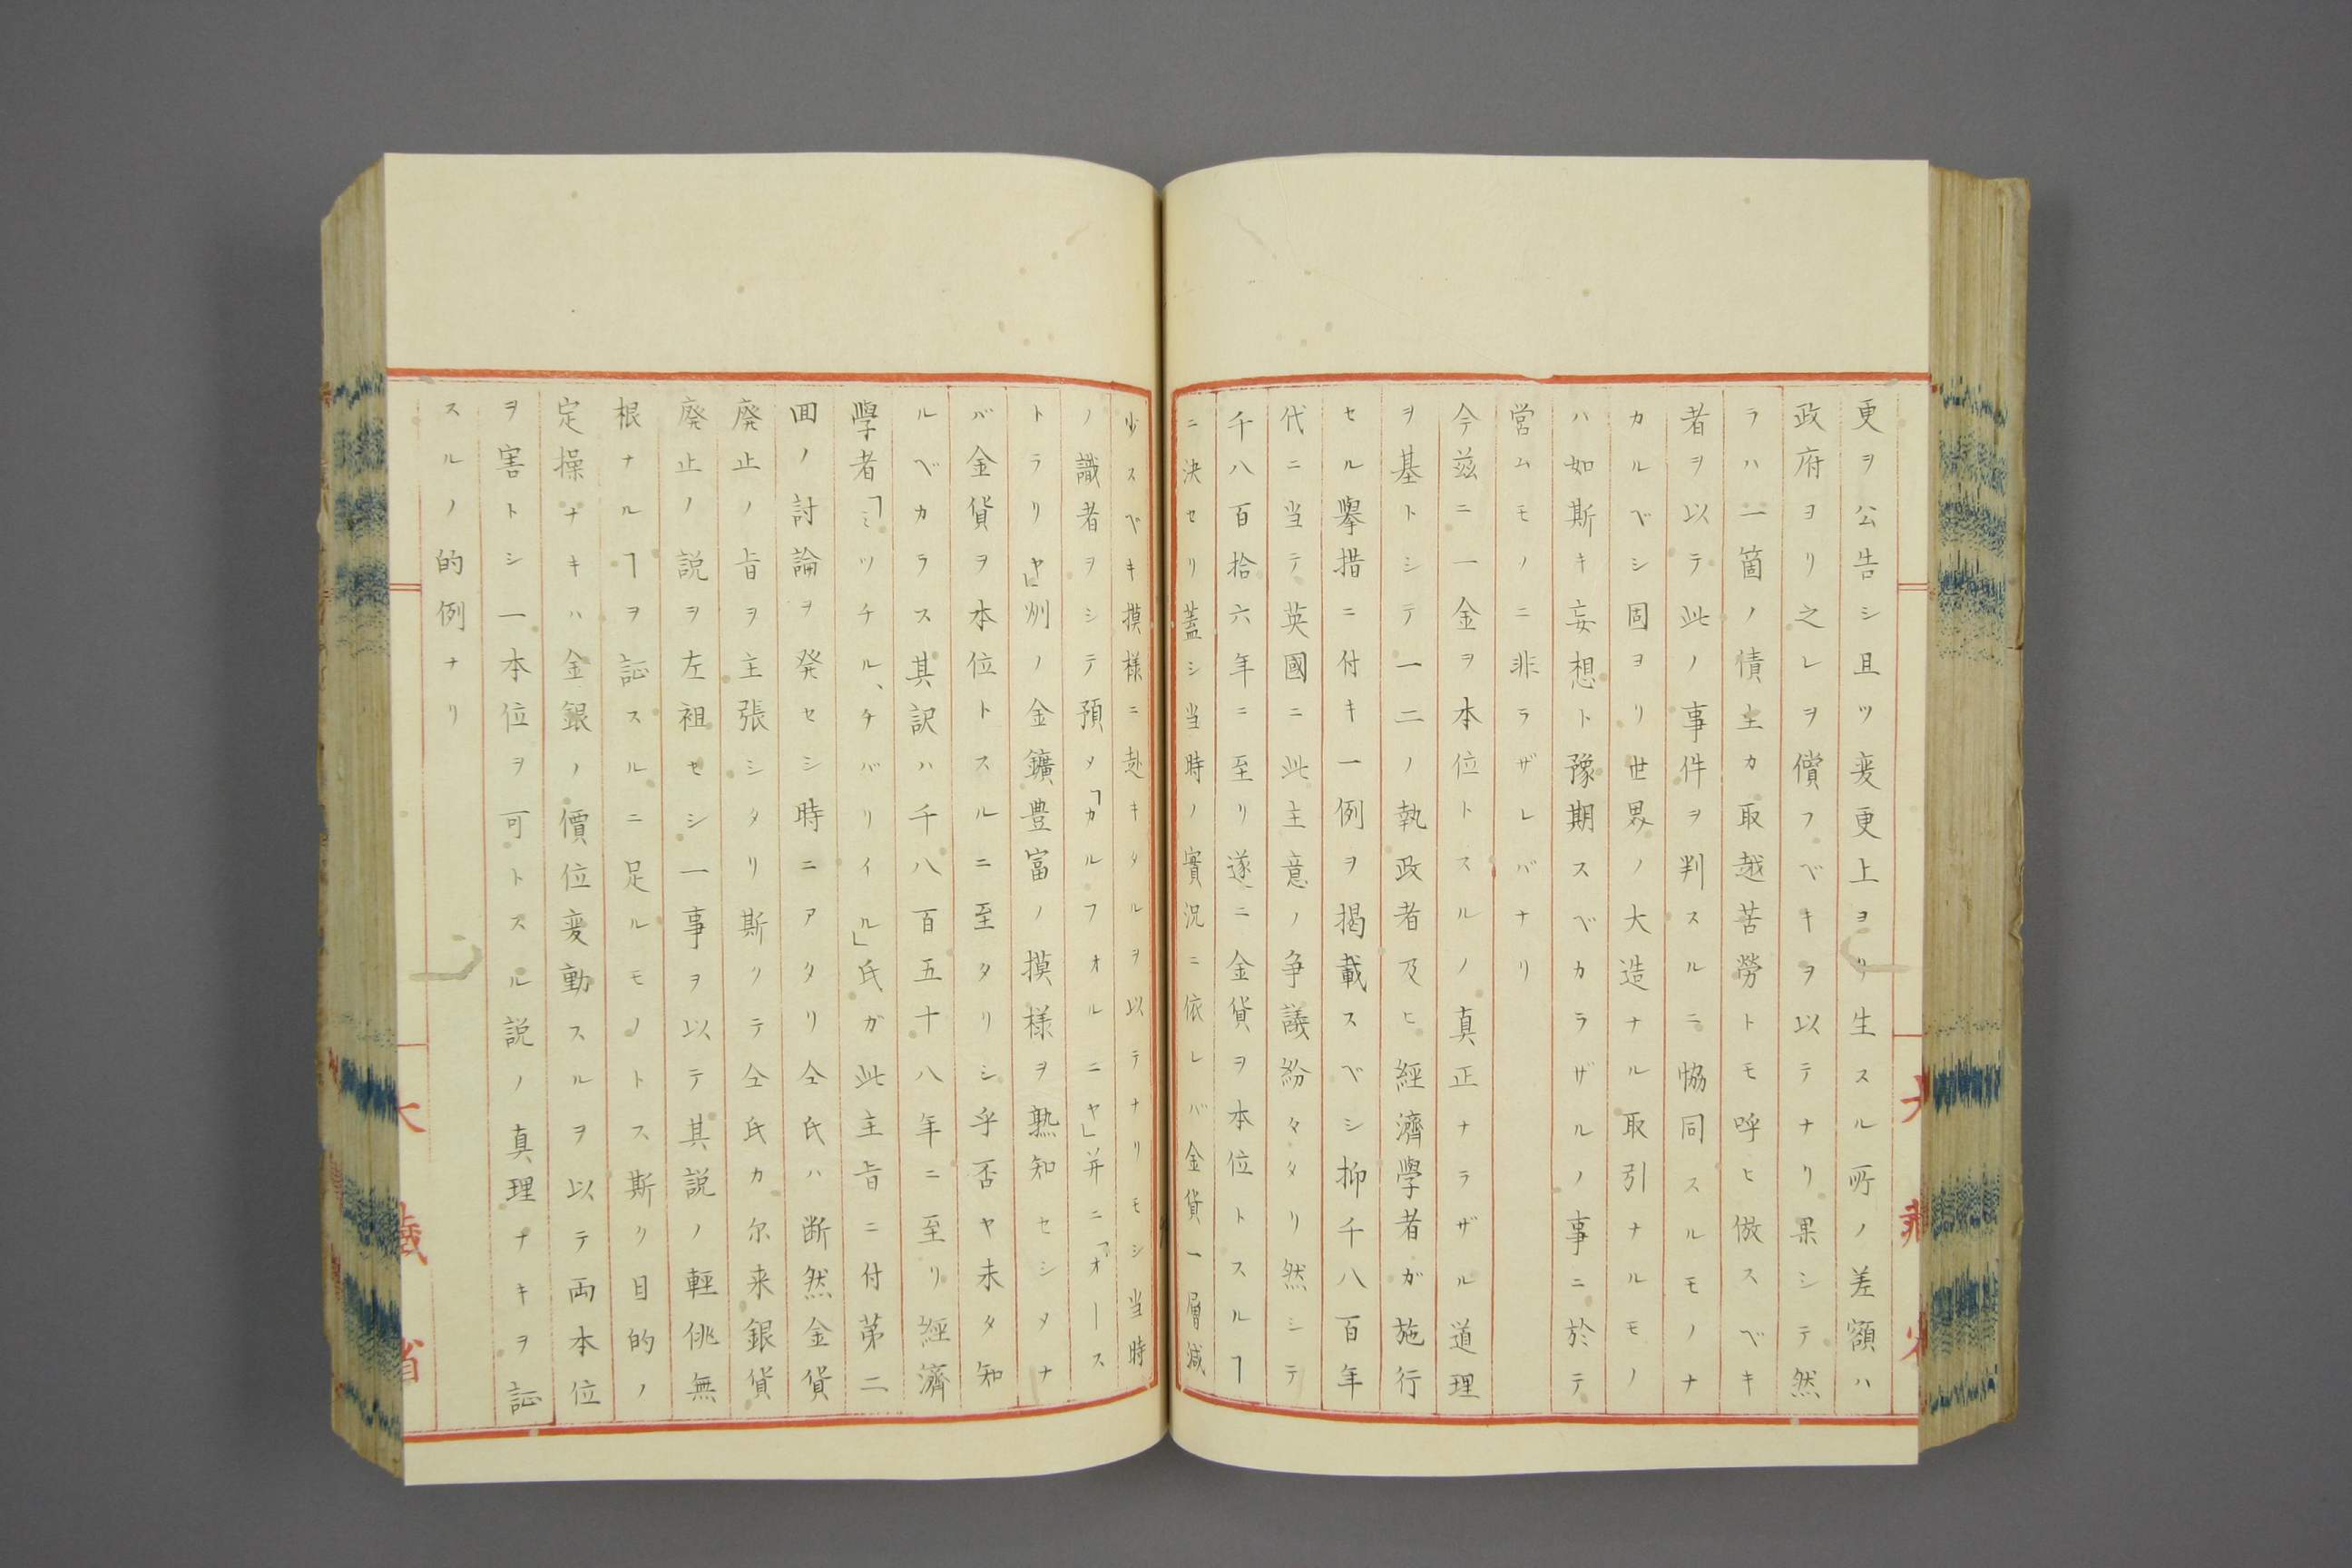 更ヲ公告シ且ツ変更上ヨリ生スル所ノ差額ハ
政府ヨリ之レヲ償フベキヲ以テナリ果シテ然
ラハ一箇ノ債主カ取越苦勞トモ呼ヒ倣スベキ
者ヲ以テ此ノ事件ヲ判スルニ協同スルモノナ
カルベシ固ヨリ世界ノ大造ナル取引ナルモノ
ハ如斯キ妄想ト豫期スベカラザルノ事ニ於テ
営ムモノニ非ラザレバナリ
今茲ニ一金ヲ本位トスルノ真正ナラザル道理
ヲ基トシテ一二ノ執政者及ヒ經濟學者ガ施行
セル擧措ニ付キ一例ヲ掲載スベシ抑千八百年
代ニ当テ英國ニ此主意ノ争議紛々タリ然シテ
千八百拾六年ニ至リ遂ニ金貨ヲ本位トスルヿ
ニ決セリ蓋シ当時ノ實況ニ依レバ金貨一層減
少スベキ摸様ニ赴キタルヲ以テナリモシ当時
ノ識者ヲシテ預メ「カルフオルニヤ」并ニ「オース
トラリヤ」州ノ金鑛豊富ノ摸様ヲ熟知セシメナ
バ金貨ヲ本位トスルニ至タリシ乎否ヤ未タ知
ルベカラス其訳ハ千八百五十八年ニ至リ經濟
學者「ミツチル、チバリイル」氏ガ此主旨ニ付第二
回ノ討論ヲ発セシ時ニアタリ仝氏ハ断然金貨
廃止ノ旨ヲ主張シタリ斯クテ仝氏カ尓来銀貨
廃止ノ説ヲ左袒セシ一事ヲ以テ其説ノ輕佻無
根ナルヿヲ証スルニ足ルモノトス斯ク目的ノ
定操ナキハ金銀ノ價位変動スルヲ以テ両本位
ヲ害トシ一本位ヲ可トスル説ノ真理ナキヲ証
スルノ的例ナリ
大藏省